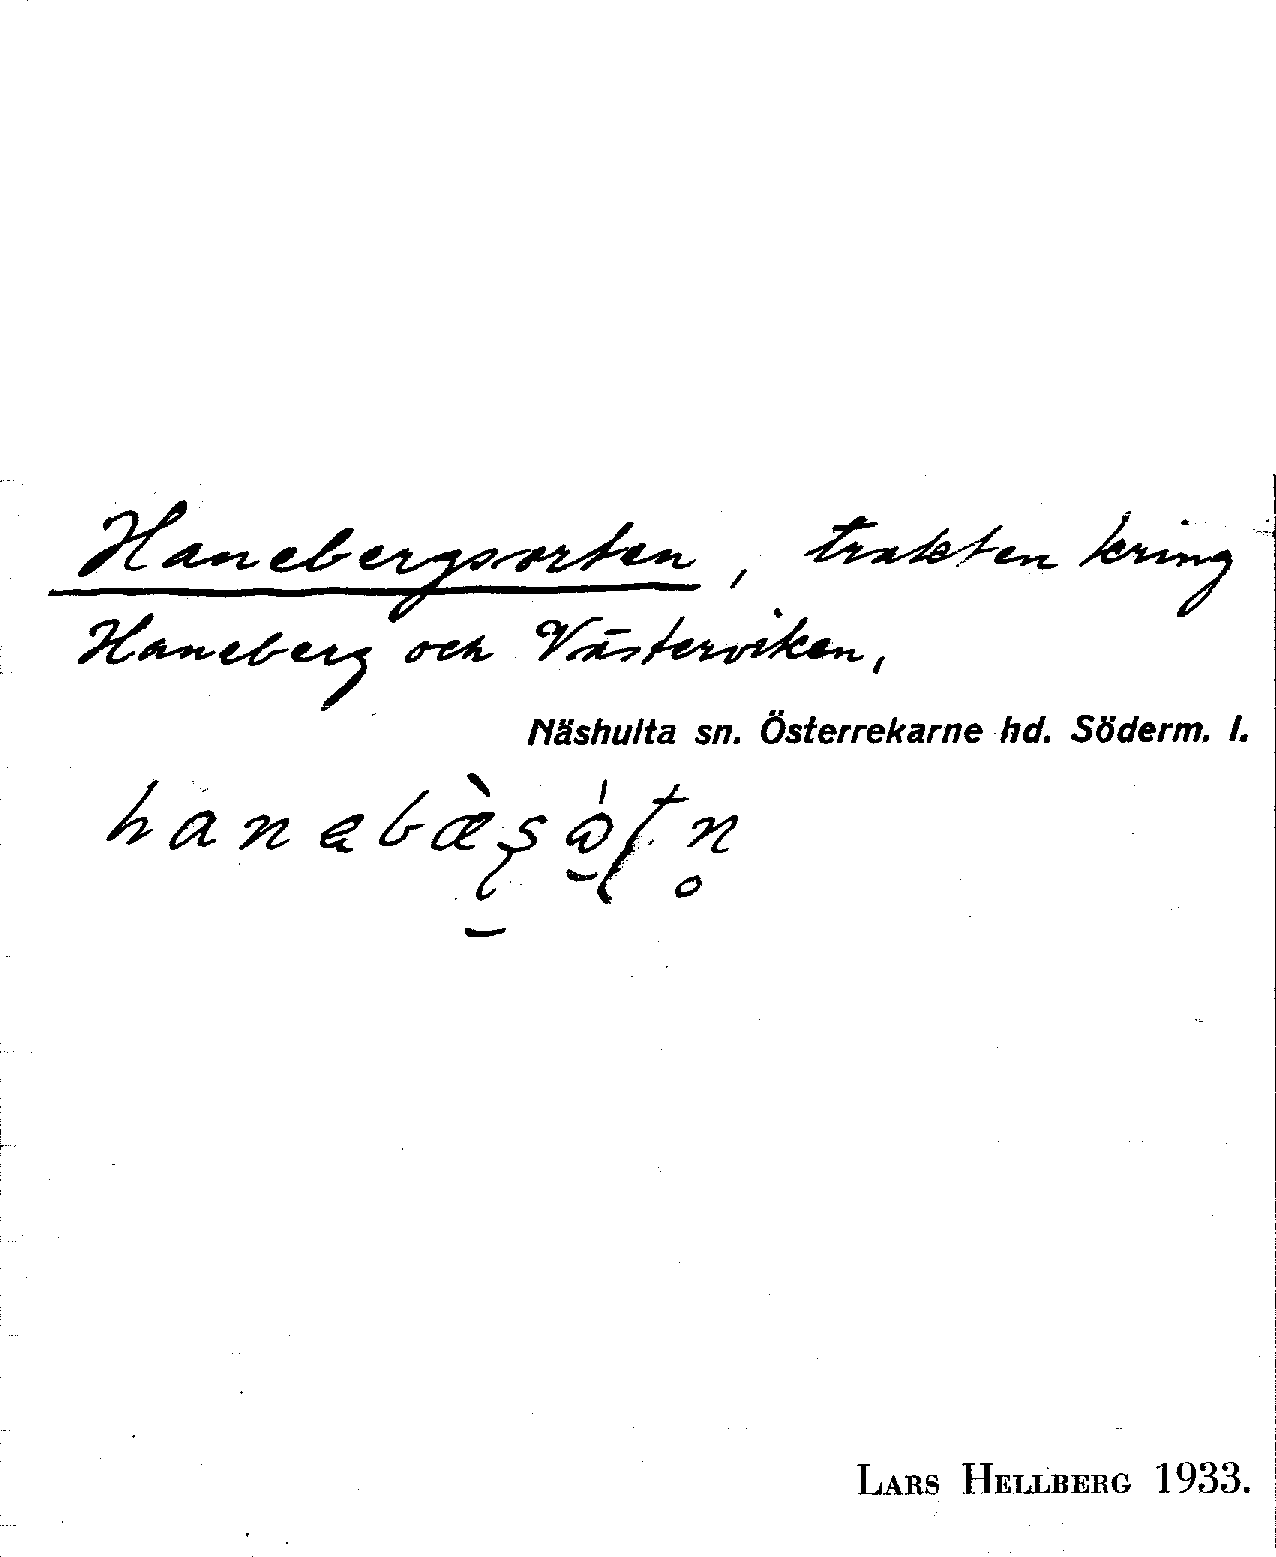 Hanebergsorten, trakten kring
Haneberg och Västerviken,
Näshulta sn. Österrekarne hd. Söderm. l.
LARS HELLBERG 1933.